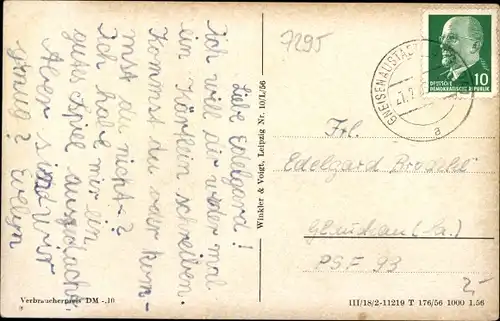 Liebe Edelgard!
Ich will dir wieder mal
ein Kärtlein schreiben.
Kommst du oder kom-
mst du nicht?
Ich habe mir ein
gutes Spiel ausgedacht.
Aber sind wir
Winkler & Voigt, Leipzig Nr. 10/L/56
Verbraucherpreis DM -,10
7295
GNEISENAUSTADT
a
10
DEUTSCHE
DEMOKRATISCHE REPUBLIK
Frl.
Edelgard
Glauchau (Sa.)
PSF 93
2,-
III/18/2-11219 T 176/56 1000 1.56